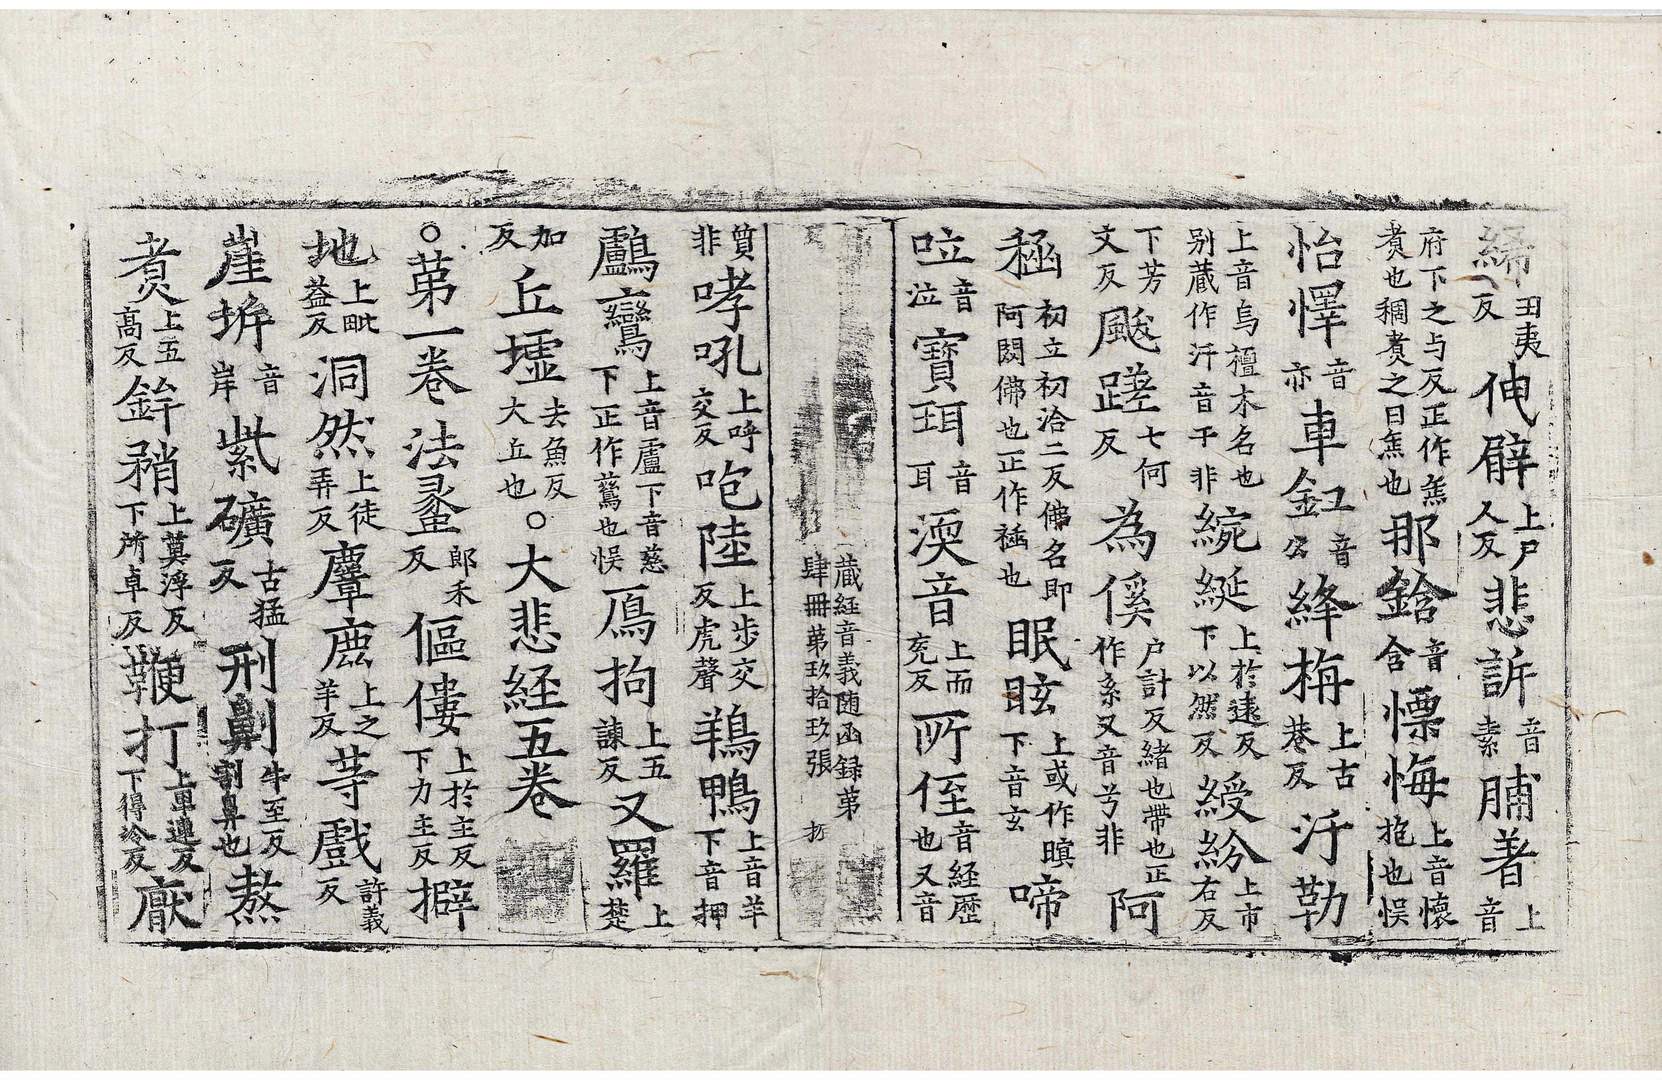 綈田夷反伸臂上尸人反悲訴音素脯著上音
府下之与反正作𤋎煑也稠煑之曰𤋎也那鋡音含慓悔上音懷抱也悮
怡懌音亦車釭音公絳栴上古巷反汙勒
上音烏檀木名也别蔵作汗音干非綩綖上於遠反下以然反綬紛上市右反
下芳文反颰蹉七何反為傒户計反緒也帶也正作系又音兮非阿
𥞤初立初洽二反佛名即阿閦佛也正作𥞤也眠眩上或作瞑下音玄啼
泣音泣寶珥音耳渜音上而兖反所侄音経歴也又音
質非哮吼上呼交反咆陸上步交反虎聲鴹鴨上音羊下音押
鸕鷥上音盧下音慈下正作鷀也悮鴈拘上五諫反又羅上楚
加反丘墟去魚反大丘也○大悲経五卷
○第一卷法䗍郎禾反傴僂上於主反下力主反擗
地上毗益反洞然上徒弄反麞鹿上之羊反䓁戲許義反
崖垿音岸紫礦古猛反刑劓牛至反割鼻也熬
煑上五高反鉾矟上莫浮反下所卓反鞭打上卑連反下得冷反厭
蔵経音義随函録第
肆冊第玖拾玖張